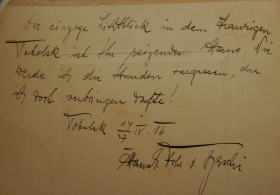 Der einzige Lichtblick in dem traurigen
Tobolsk ist Ihr reizendes Haus. Nie
werde ich die Stunden vergessen, die
ich dort verbringen durfte!
Tobolsk 17/4 IV. 16